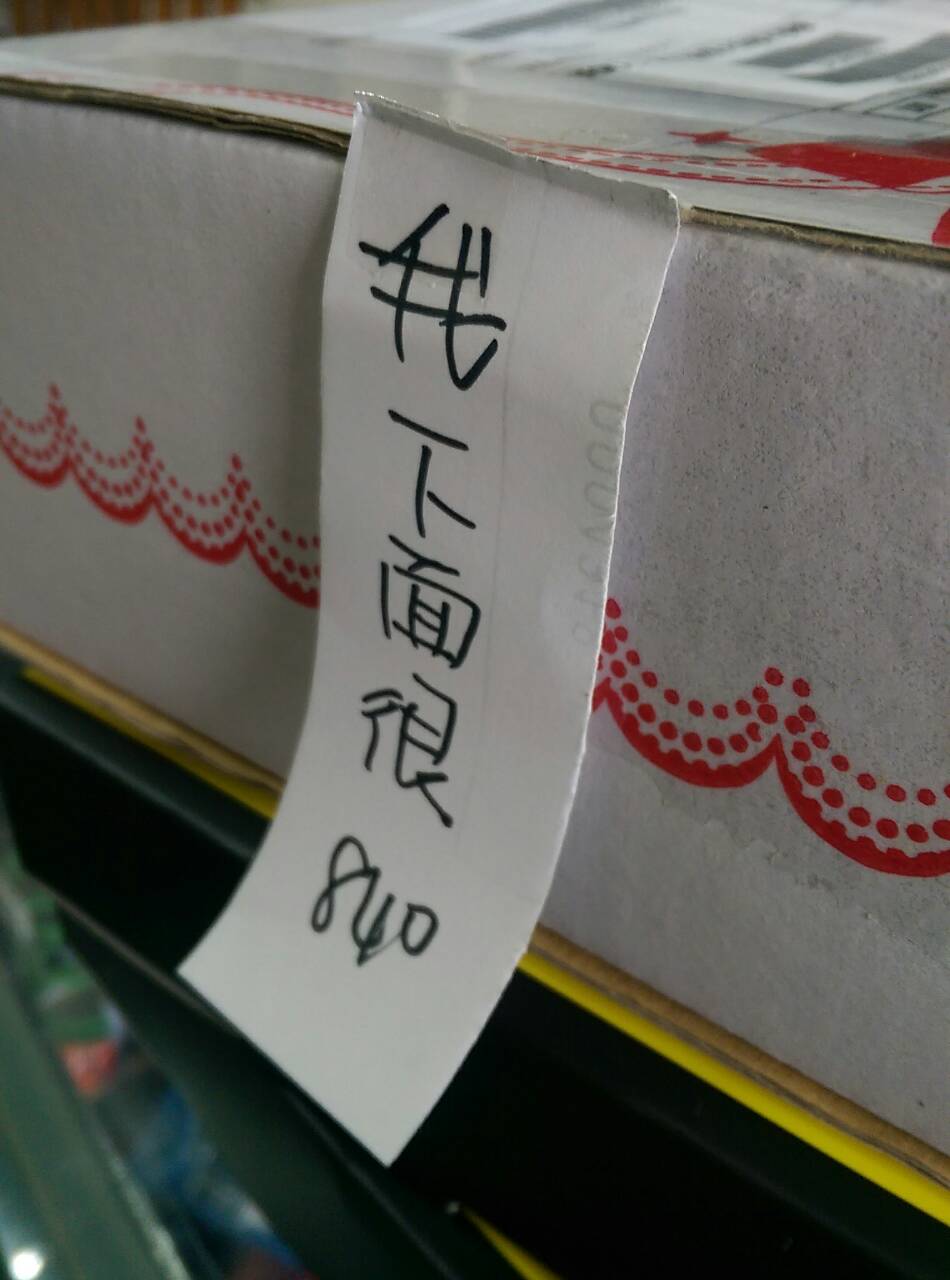 我下面很
840